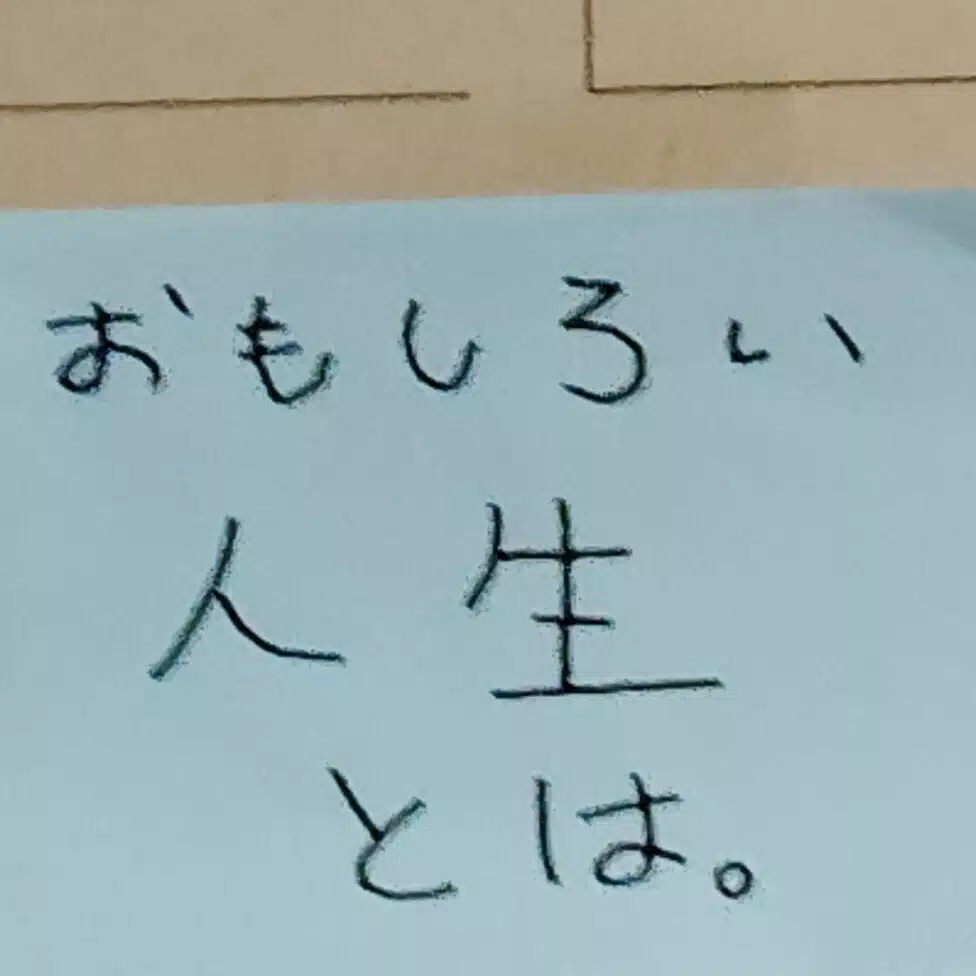 おもしろい
人生
とは。